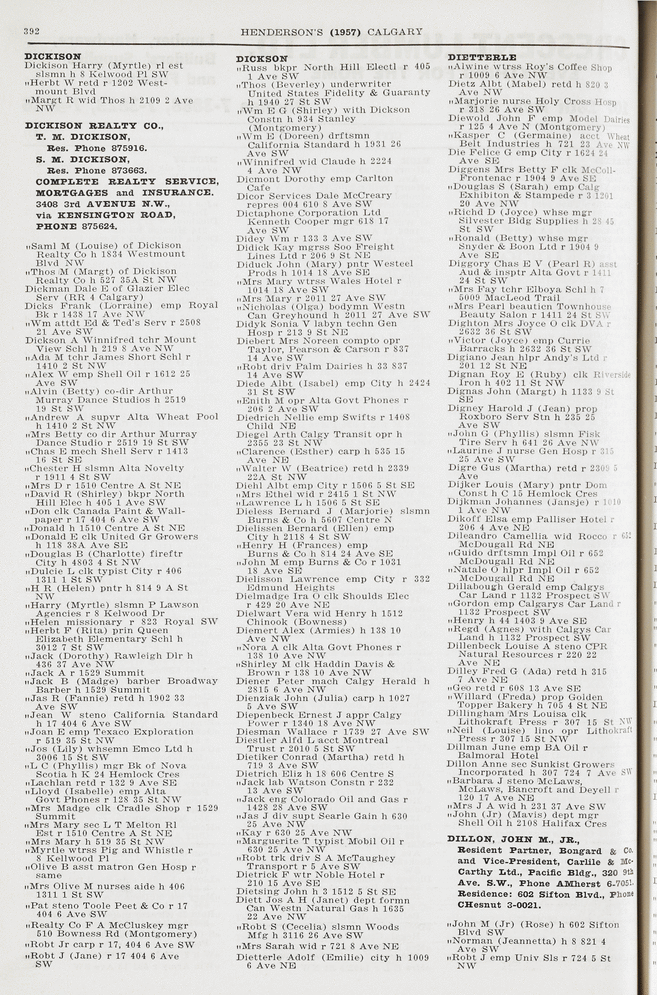 392
HENDERSON'S (1957) CALGARY
DICKISON
Dickison Harry (Myrtle) rl est
slsmn h 8 Kelwood Pl SW
„Herbt W retd r 1202 West-
mount Blvd
„Margt R wid Thos h 2109 2 Ave
NW
DICKISON REALTY CO.,
T. M. DICKISON,
Res. Phone 875916.
S. M. DICKISON,
Res. Phone 873663.
COMPLETE REALTY SERVICE,
MORTGAGES and INSURANCE,
3408 3rd AVENUE N.W.,
via KENSINGTON ROAD,
PHONE 875624.
„Saml M (Louise) of Dickison
Realty Co h 1834 Westmount
Blvd NW
„Thos M (Margt) of Dickison
Realty Co h 527 35A St NW
Dickman Dale E of Glazier Elec
Serv (RR 4 Calgary)
Dicks Frank (Lorraine) emp Royal
Bk r 1438 17 Ave NW
„Wm attdt Ed & Ted's Serv r 2508
21 Ave SW
Dickson A Winnifred tchr Mount
View Schl h 219 8 Ave NW
„Ada M tchr James Short Schl r
1410 2 St NW
„Alex W emp Shell Oil r 1612 25
Ave SW
„Alvin (Betty) co-dir Arthur
Murray Dance Studios h 2519
19 St SW
„Andrew A supvr Alta Wheat Pool
h 1410 2 St NW
„Mrs Betty co dir Arthur Murray
Dance Studio r 2519 19 St SW
„Chas E mech Shell Serv r 1413
16 St SE
„Chester H slsmn Alta Novelty
r 1911 4 St SW
„Mrs D r 1510 Centre A St NE
„David R (Shirley) bkpr North
Hill Elec h 405 1 Ave SW
„Don clk Canada Paint & Wall-
paper r 17 404 6 Ave SW
„Donald h 1510 Centre A St NE
„Donald E clk United Gr Growers
h 118 38A Ave SE
„Douglas B (Charlotte) fireftr
City h 4803 4 St NW
„Dulcie L clk typist City r 406
1311 1 St SW
„H R (Helen) pntr h 814 9 A St
NW
„Harry (Myrtle) slsmn P Lawson
Agencies r 8 Kelwood Dr
„Helen missionary r 823 Royal SW
„Herbt F (Rita) prin Queen
Elizabeth Elementary Schl h
3012 7 St SW
„Jack (Dorothy) Rawleigh Dlr h
436 37 Ave NW
„Jack A r 1529 Summit
„Jack B (Madge) barber Broadway
Barber h 1529 Summit
„Jas R (Fannie) retd h 1902 33
Ave SW
„Jean W steno California Standard
h 17 404 6 Ave SW
„Joan E emp Texaco Exploration
r 519 35 St NW
„Jos (Lily) whsemn Emco Ltd h
3006 15 St SW
„L C (Phyllis) mgr Bk of Nova
Scotia h K 24 Hemlock Cres
„Lachlan retd r 132 9 Ave SE
„Lloyd (Isabelle) emp Alta
Govt Phones r 128 35 St NW
„Mrs Madge clk Cradle Shop r 1529
Summit
„Mrs Mary sec L T Melton Rl
Est r 1510 Centre A St NE
„Mrs Mary h 519 35 St NW
„Myrtle wtrss Pig and Whistle r
8 Kellwood Pl
„Olive B asst matron Gen Hosp r
same
„Mrs Olive M nurses aide h 406
1311 1 St SW
„Pat steno Toole Peet & Co r 17
404 6 Ave SW
„Realty Co F A McCluskey mgr
510 Bowness Rd (Montgomery)
„Robt Jr carp r 17, 404 6 Ave SW
„Robt J (Jane) r 17 404 6 Ave
SW
DICKSON
„Russ bkpr North Hill Electl r 405
1 Ave SW
„Thos (Beverley) underwriter
United States Fidelity & Guaranty
h 1940 27 St SW
„Wm E G (Shirley) with Dickson
Constn h 934 Stanley
(Montgomery)
„Wm E (Doreen) drftsmn
California Standard h 1931 26
Ave SW
„Winnifred wid Claude h 2224
4 Ave NW
Dicmont Dorothy emp Carlton
Cafe
Dicor Services Dale McCreary
repres 004 610 8 Ave SW
Dictaphone Corporation Ltd
Kenneth Cooper mgr 618 17
Ave SW
Didey Wm r 133 3 Ave SW
Didick Kay mgrss Soo Freight
Lines Ltd r 206 9 St NE
Diduck John (Mary) pntr Westeel
Prods h 1014 18 Ave SE
„Mrs Mary wtrss Wales Hotel r
1014 18 Ave SW
„Mrs Mary r 2011 27 Ave SW
„Nicholas (Olga) bodymn Westn
Can Greyhound h 2011 27 Ave SW
Didyk Sonia V labyn techn Gen
Hosp r 213 9 St NE
Diebert Mrs Noreen compto opr
Taylor, Pearson & Carson r 837
14 Ave SW
„Robt driv Palm Dairies h 33 837
14 Ave SW
Diede Albt (Isabel) emp City h 2424
31 St SW
„Enith M opr Alta Govt Phones r
206 2 Ave SW
Diedrich Nellie emp Swifts r 1408
Child NE
Diegel Arth Calgy Transit opr h
2355 23 St NW
„Clarence (Esther) carp h 535 15
Ave NE
„Walter W (Beatrice) retd h 2339
22A St NW
Diehl Albt emp City r 1506 5 St SE
„Mrs Ethel wid r 2415 1 St NW
„Lawrence L h 1506 5 St SE
Dieless Bernard J (Marjorie) slsmn
Burns & Co h 5607 Centre N
Dielissen Bernard (Ellen) emp
City h 2118 4 St SW
„Henry H (Frances) emp
Burns & Co h 814 24 Ave SE
„John M emp Burns & Co r 1031
18 Ave SE
Dielisson Lawrence emp City r 332
Edmund Heights
Dielmadge Ira O clk Shoulds Elec
r 429 20 Ave NE
Dielwart Vera wid Henry h 1512
Chinook (Bowness)
Diemert Alex (Armies) h 138 10
Ave NW
„Nora A clk Alta Govt Phones r
138 10 Ave NW
„Shirley M clk Haddin Davis &
Brown r 138 10 Ave NW
Diener Peter mach Calgy Herald h
2815 6 Ave NW
Dienziak John (Julia) carp h 1027
5 Ave SW
Diepenbeck Ernest J appr Calgy
Power r 1340 18 Ave NW
Diesman Wallace r 1739 27 Ave SW
Diestler Alfd L acct Montreal
Trust r 2010 5 St SW
Dietiker Conrad (Martha) retd h
719 3 Ave SW
Dietrich Eliz h 18 606 Centre S
„Jack lab Watson Constn r 232
13 Ave SW
„Jack eng Colorado Oil and Gas r
1428 28 Ave SW
„Jas J div supt Searle Gain h 630
25 Ave NW
„Kay r 630 25 Ave NW
„Marguerite T typist Mobil Oil r
630 25 Ave NW
„Robt trk driv S A McTaughey
Transport r 5 Ave SW
Dietrick F wtr Noble Hotel r
210 15 Ave SE
Dietsing John h 3 1512 5 St SE
Diett Jos A H (Janet) dept formn
Can Westn Natural Gas h 1635
22 Ave NW
„Robt S (Cecelia) slsmn Woods
Mfg h 3116 26 Ave SW
„Mrs Sarah wid r 721 8 Ave NE
Dietterle Adolf (Emilie) city h 1009
6 Ave NE
DIETTERLE
„Alwine wtrss Roy's Coffee Shop
r 1009 6 Ave NW
Dietz Albt (Mabel) retd h 820 3
Ave NW
„Marjorie nurse Holy Cross Hosp
r 318 26 Ave SW
Diewold John F emp Model Dairies
r 125 4 Ave N (Montgomery)
„Kasper C (Germaine) acct Wheat
Belt Industries h 721 23 Ave NW
Die Felice G emp City r 1624 24
Ave SE
Diggens Mrs Betty F clk McColl-
Frontenac r 1904 9 Ave SE
„Douglas S (Sarah) emp Calg
Exhibiton & Stampede r 3 1201
20 Ave NW
„Richd D (Joyce) whse mgr
Silvester Bldg Supplies h 28 45
St SW
„Ronald (Betty) whse mgr
Snyder & Bonn Ltd r 1904 9
Ave SE
Diggory Chas E V (Pearl R) asst
Aud & insptr Alta Govt r 1411
24 St SW
„Mrs Fay tchr Elboya Schl h 7
5009 Macleod Trail
„Mrs Pearl beautien Townhouse
Beauty Salon r 1411 24 St SW
Dighton Mrs Joyce O clk DVA r
2632 36 St SW
„Victor (Joyce) emp Currie
Barracks h 2632 36 St SW
Digiano Jean hlpr Andy's Ltd r
201 12 St NE
Dignan Roy E (Ruby) clk Riverside
Iron h 402 11 St NW
Dignas John (Margt) h 1133 9 St
SE
Digney Harold J (Jean) prop
Roxboro Serv Stn h 235 25
Ave SW
„John G (Phyllis) slsmn Fisk
Tire Serv h 641 26 Ave NW
„Laurine J nurse Gen Hosp r 315
25 Ave SW
Digre Gus (Martha) retd r 2309 5
Ave
Dijker Louis (Mary) pntr Dom
Const h C 15 Hemlock Cres
Dijkman Johannes (Jansje) r 1010
1 Ave NW
Dikoff Elsa emp Palliser Hotel r
206 4 Ave NE
Dileandro Camellia wid Rocco r 652
McDougall Rd NE
„Guido drftsmn Impl Oil r 652
McDougall Rd NE
„Natale O hlpr Impl Oil r 652
McDougall Rd NE
Dillabough Gerald emp Calgys
Car Land r 1132 Prospect SW
„Gordon emp Calgarys Car Land r
1132 Prospect SW
„Henry h 44 1403 9 Ave SE
„Regd (Agnes) with Calgys Car
Land h 1132 Prospect SW
Dillenbeck Louise A steno CPR
Natural Resources r 220 22
Ave NE
Dilley Fred G (Ada) retd h 315
7 Ave NE
„Geo retd r 608 13 Ave SE
„Willard (Freda) prop Golden
Topper Bakery h 705 4 St NE
Dillingham Mrs Louisa clk
Lithokraft Press r 307 15 St NW
„Neil (Louise) lino opr Lithokraft
Press r 307 15 St NW
Dillman June emp BA Oil r
Balmoral Hotel
Dillon Anne sec Sunkist Growers
Incorporated h 307 724 7 Ave SW
„Barbara J steno McLaws,
McLaws, Bancroft and Deyell r
120 17 Ave NE
„Mrs J A wid h 231 37 Ave SW
„John (Jr) (Mavis) dept mgr
Shell Oil h 2108 Halifax Cres
DILLON, JOHN M., JR.,
Resident Partner, Bongard & Co.
and Vice-President, Carlile & Mc-
Carthy Ltd., Pacific Bldg., 320 9th
Ave. S.W., Phone AMherst 6-7051.
Residence: 602 Sifton Blvd., Phone
CHesnut 3-0021.
„John M (Jr) (Rose) h 602 Sifton
Blvd SW
„Norman (Jeannetta) h 8 821 4
Ave SW
„Robt J emp Univ Sls r 724 5 St
NW